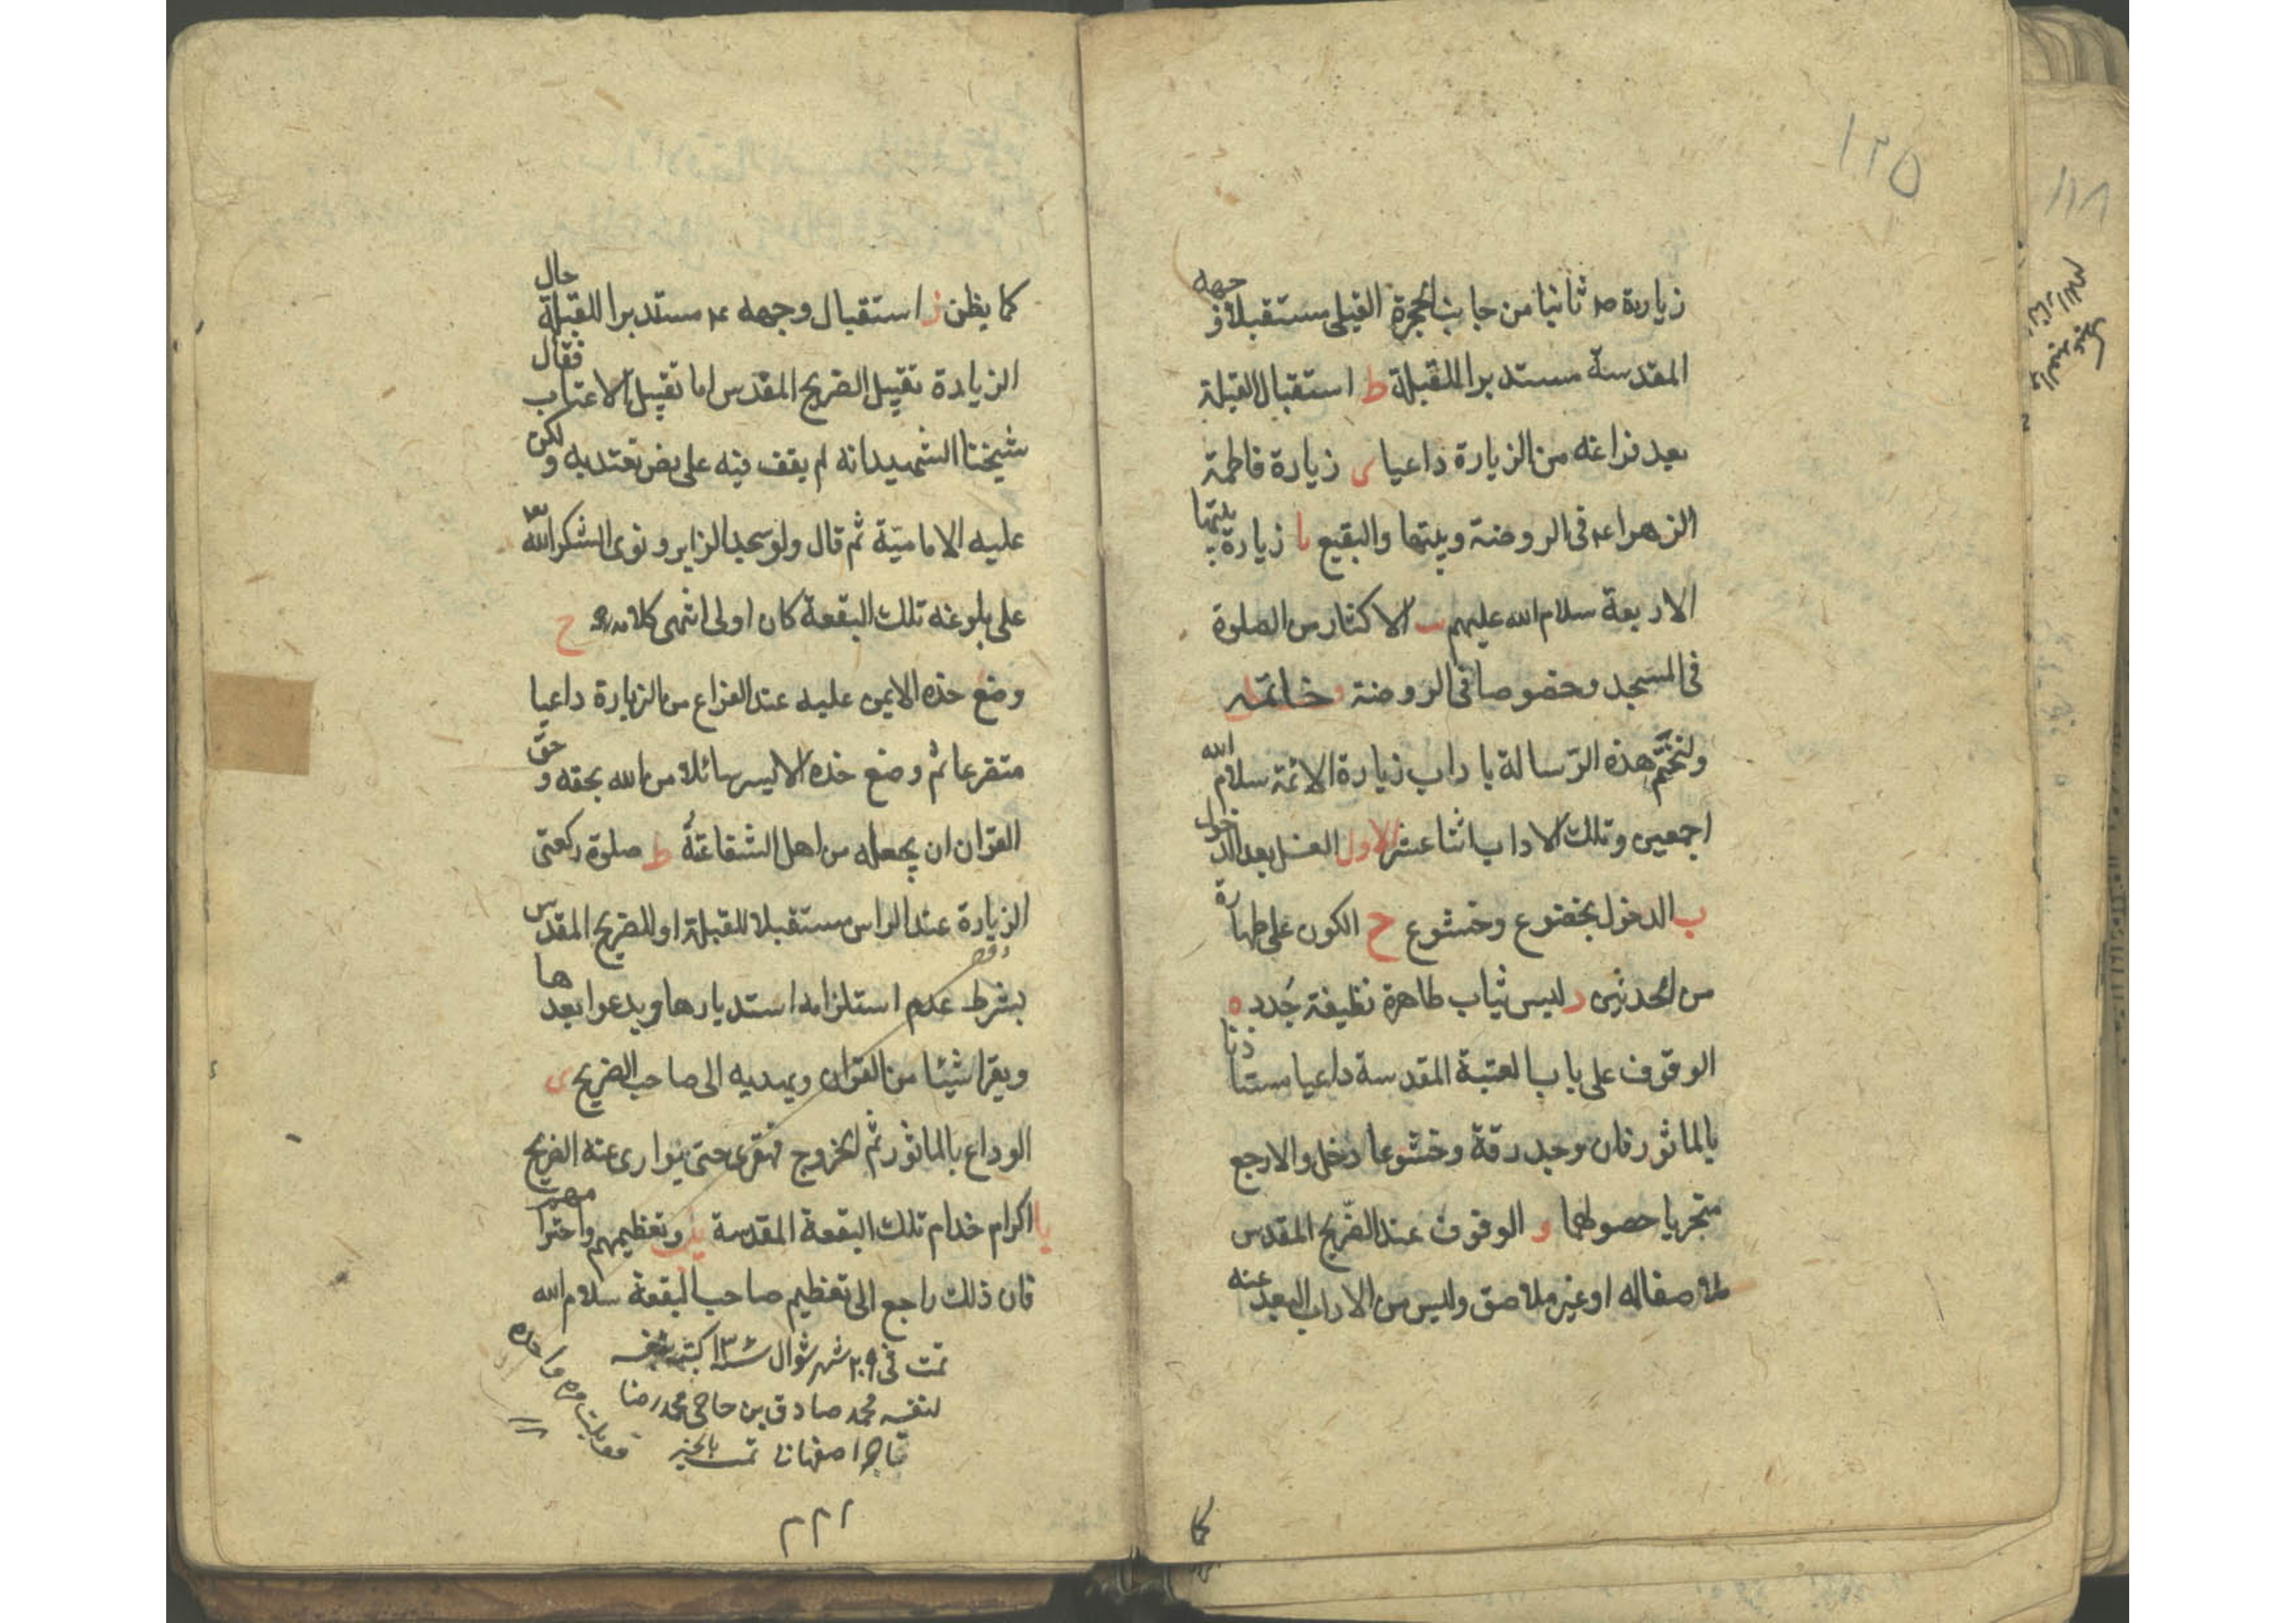 ١٢٥
زيارته ص ثانيا من جانب الحجرة القبلى مستقبلا وجهه
المقدسة مستدبرا للقبلة ط استقبال القبلة
بعد فراغه من الزيارة داعيا ى زيارة فاطمة
الزهرا عه فى الروضة وبيتها والبقيع يا زيارة بيتها
الاربعة سلام الله عليهم يب الاكثار من الصلوة
فى المسجد وخصوصا فى الروضة خاتمه
ولنختم هذه الرسالة باداب زيارة الائمة سلام الله
اجمعين وتلك الاداب اثنا عشر الاول الغسل بعد الدخول
ب الدخول بخضوع وخشوع ح الكون على طهارة
من الحدثين د لبس ثياب طاهرة نظيفة جدد ه
الوقوف على باب العتبة المقدسة داعيا مستاذنا
بالماثور فان وجد رقة وخشوعا دخل والا رجع
متحريا حصولهما و الوقوف عند الضريح المقدس
ملاصقا له او غير ملاصق وليس من الاداب البعد عنه
كما
كما يظن ز استقبال وجهه عه مستدبرا للقبلة حال
الزيارة تقبيل الضريح المقدس اما تقبيل الاعتاب فقال
شيخنا الشهيد انه لم يقف فيه على نص نعتد به ولكن
عليه الامامية ثم قال ولو سجد الزاير ونوى الشكر لله
على بلوغه تلك البقعة كان اولى انتهى كلامه ح
وضع خده الايمن عليه عند الفراغ من الزيارة داعيا
متضرعا ثم وضع خده الايسر سائلا من الله بحقه وحق
القران ان يجعله من اهل الشفاعة ط صلوة ركعتى
الزيارة عند الراس مستقبلا للقبلة او للضريح المقدس
بشرط عدم استلزامه استدبارها ويدعوا بعدها
ويقرا شيئا من القران ويهديه الى صاحب الضريح ى
الوداع بالماثور ثم الخروج قهقرى حتى يتوارى عنه الضريح
يا اكرام خدام تلك البقعة المقدسة وتعظيمهم واحترامهم
فان ذلك راجع الى تعظيم صاحب البقعة سلام الله
تمت فى ٢٠٩ شهر شوال
لنفسه محمد صادق بن حاجى محمد رضا
تمت بالخير
٢٢١
١١٨